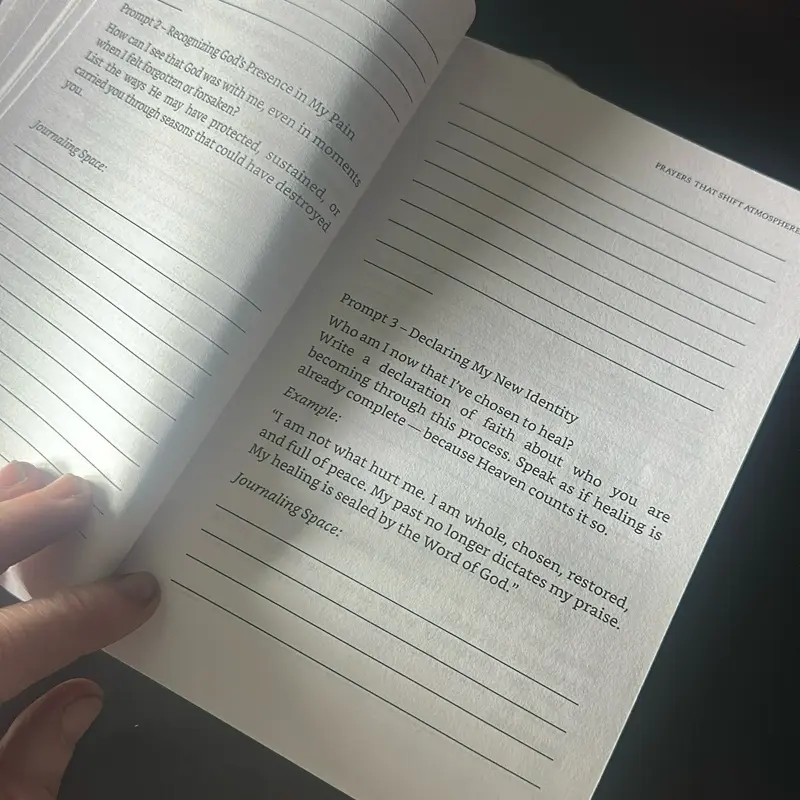 Prompt 2 – Recognizing God's Presence in My Pain
How can I see that God was with me, even in moments
when I felt forgotten or forsaken?
List the ways He may have protected, sustained, or
carried you through seasons that could have destroyed
you.
Journaling Space:
PRAYERS THAT SHIFT ATMOSPHERE
Prompt 3 – Declaring My New Identity
Who am I now that I've chosen to heal?
Write a declaration of faith about who you are
becoming through this process. Speak as if healing is
already complete — because Heaven counts it so.
Example:
"I am not what hurt me. I am whole, chosen, restored,
and full of peace. My past no longer dictates my praise.
My healing is sealed by the Word of God."
Journaling Space: